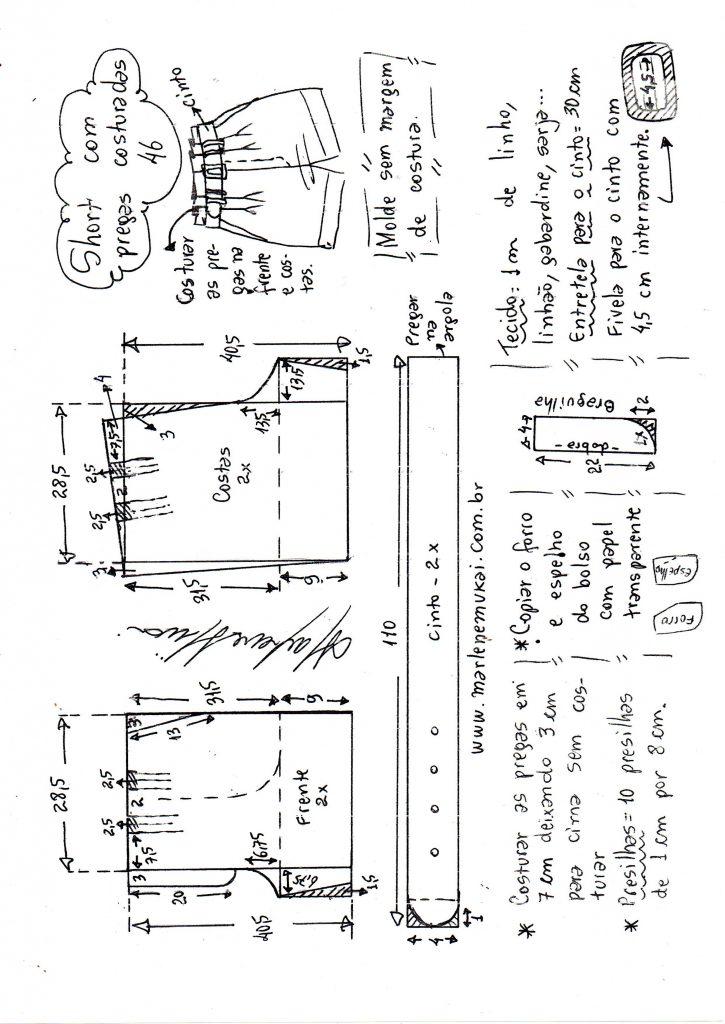 Short com
pregas costuradas
46
Costurar
as pre-
gas na
frente
e cos-
tas.
cinto
Molde sem margem
de costura.
28,5
40,5
4
7,5
2,5
2
2,5
3
3
Costas
2x
13,5
13,5
1,5
31,5
9
28,5
40,5
3
20
7,5
2,5
2
2,5
3
13
31,5
9
6,75
Frente
2x
1,5
110
Pregar
na
argola
cinto - 2x
4
4
1
www.marlenemukai.com.br
* Costurar as pregas em
7 cm deixando 3 cm
para cima sem cos-
turar
* Presilhas = 10 presilhas
de 1 cm por 8 cm.
* Copiar o forro
e espelho
do bolso
com papel
transparente
Forro
espelho
4
22
-dobra-
1x
2
Braguilha
Tecido: 1 m de linho,
linhão, gabardine, sarja...
Entretela para o cinto = 30 cm
Fivela para o cinto com
4,5 cm internamente.
4,5